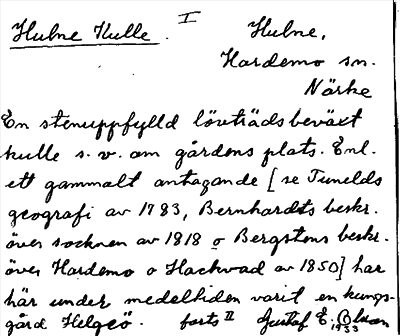 Hulne Kulle. I Hulne,
Hardemo sn.
Närke
En stenuppfylld lövträdsbeväxt
kulle s.v. om gårdens plats. Enl.
ett gammalt antagande [se Tunelds
geografi av 1783, Bernhardts beskr.
över socknen av 1818 o Bergstens beskr.
över Hardemo o Hackvad av 1850] har
här under medeltiden varit en kungs-
gård Helgeö. forts II Gustaf E. Olsson
1933